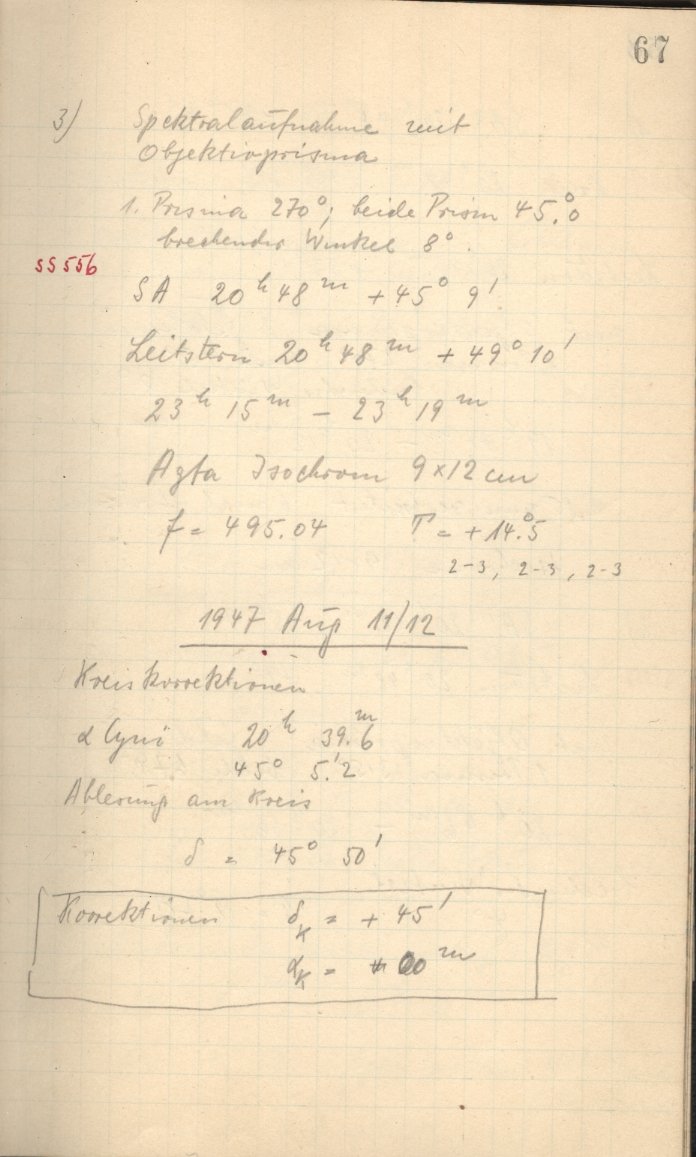 67
3) Spektralaufnahme mit
Objektivprisma
1. Prisma 270°; beide Prism 45.°0
brechender Winkel 8°.
SS 556
SA 20ʰ 48ᵐ +45° 9'
Leitstern 20ʰ 48ᵐ + 49° 10'
23ʰ 15ᵐ – 23ʰ 19ᵐ
Agfa Isochrom 9×12 cm
f = 495.04 T = +14.°5
2-3, 2-3, 2-3
1947 Aug 11/12
Kreiskorrektionen
α Cygni 20ʰ 39.ᵐ6
45° 5.'2
Ablesung am Kreis
δ = 45° 50'
Korrektionen δₖ = + 45'
αₖ = 00ᵐ